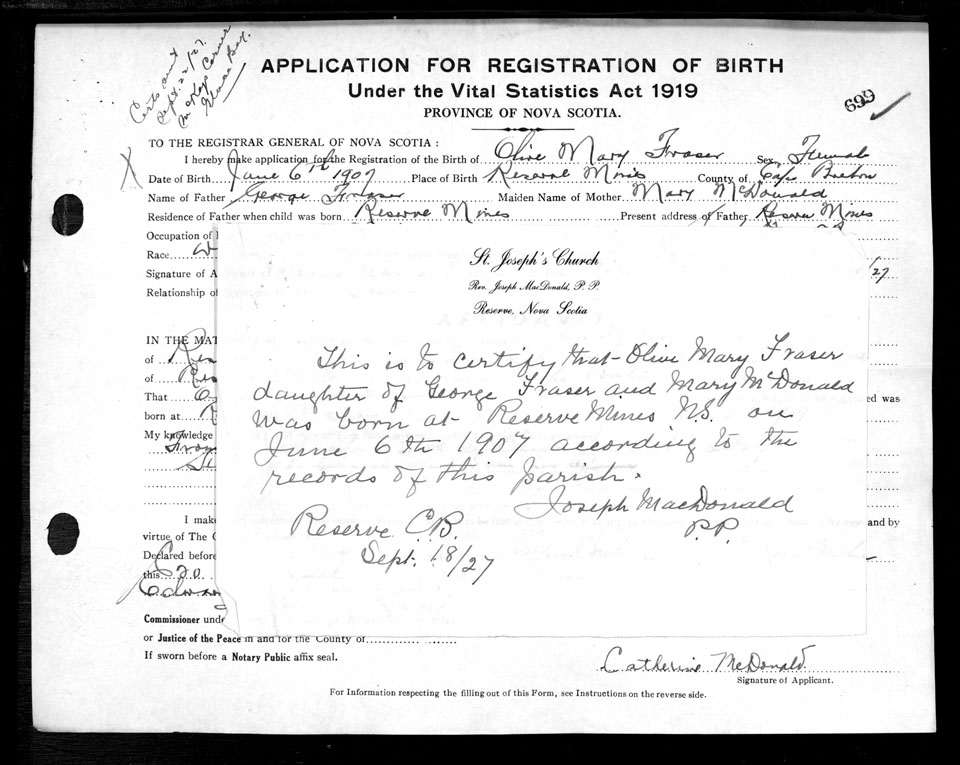 Certs sent
Sept. 22/27.
McKays Corner
Glace Bay.
APPLICATION FOR REGISTRATION OF BIRTH
Under the Vital Statistics Act 1919
PROVINCE OF NOVA SCOTIA.
699
TO THE REGISTRAR GENERAL OF NOVA SCOTIA :
I hereby make application for the Registration of the Birth of Olive Mary Fraser Sex Female
Date of Birth June 6th 1907 Place of Birth Reserve Mines County of Cape Breton
Name of Father George Fraser Maiden Name of Mother Mary McDonald
Residence of Father when child was born Reserve Mines Present address of Father Reserve Mines
Occupation of
Race
Signature of A /27
Relationship of
St. Joseph's Church
Rev. Joseph MacDonald, P. P.
Reserve, Nova Scotia
This is to certify that Olive Mary Fraser
daughter of George Fraser and Mary McDonald
was born at Reserve Mines N.S. on
June 6th 1907 according to the
records of this parish.
Joseph MacDonald
P.P.
Reserve C.B.
Sept. 18/27
IN THE MAT
of Res
of Res
That ed was
born at R
My knowledge
From
I make and by
virtue of The
Declared before
this 20
Edwar
Commissioner unde
or Justice of the Peace in and for the County of
If sworn before a Notary Public affix seal.
Catherine McDonald
Signature of Applicant.
For Information respecting the filling out of this Form, see Instructions on the reverse side.